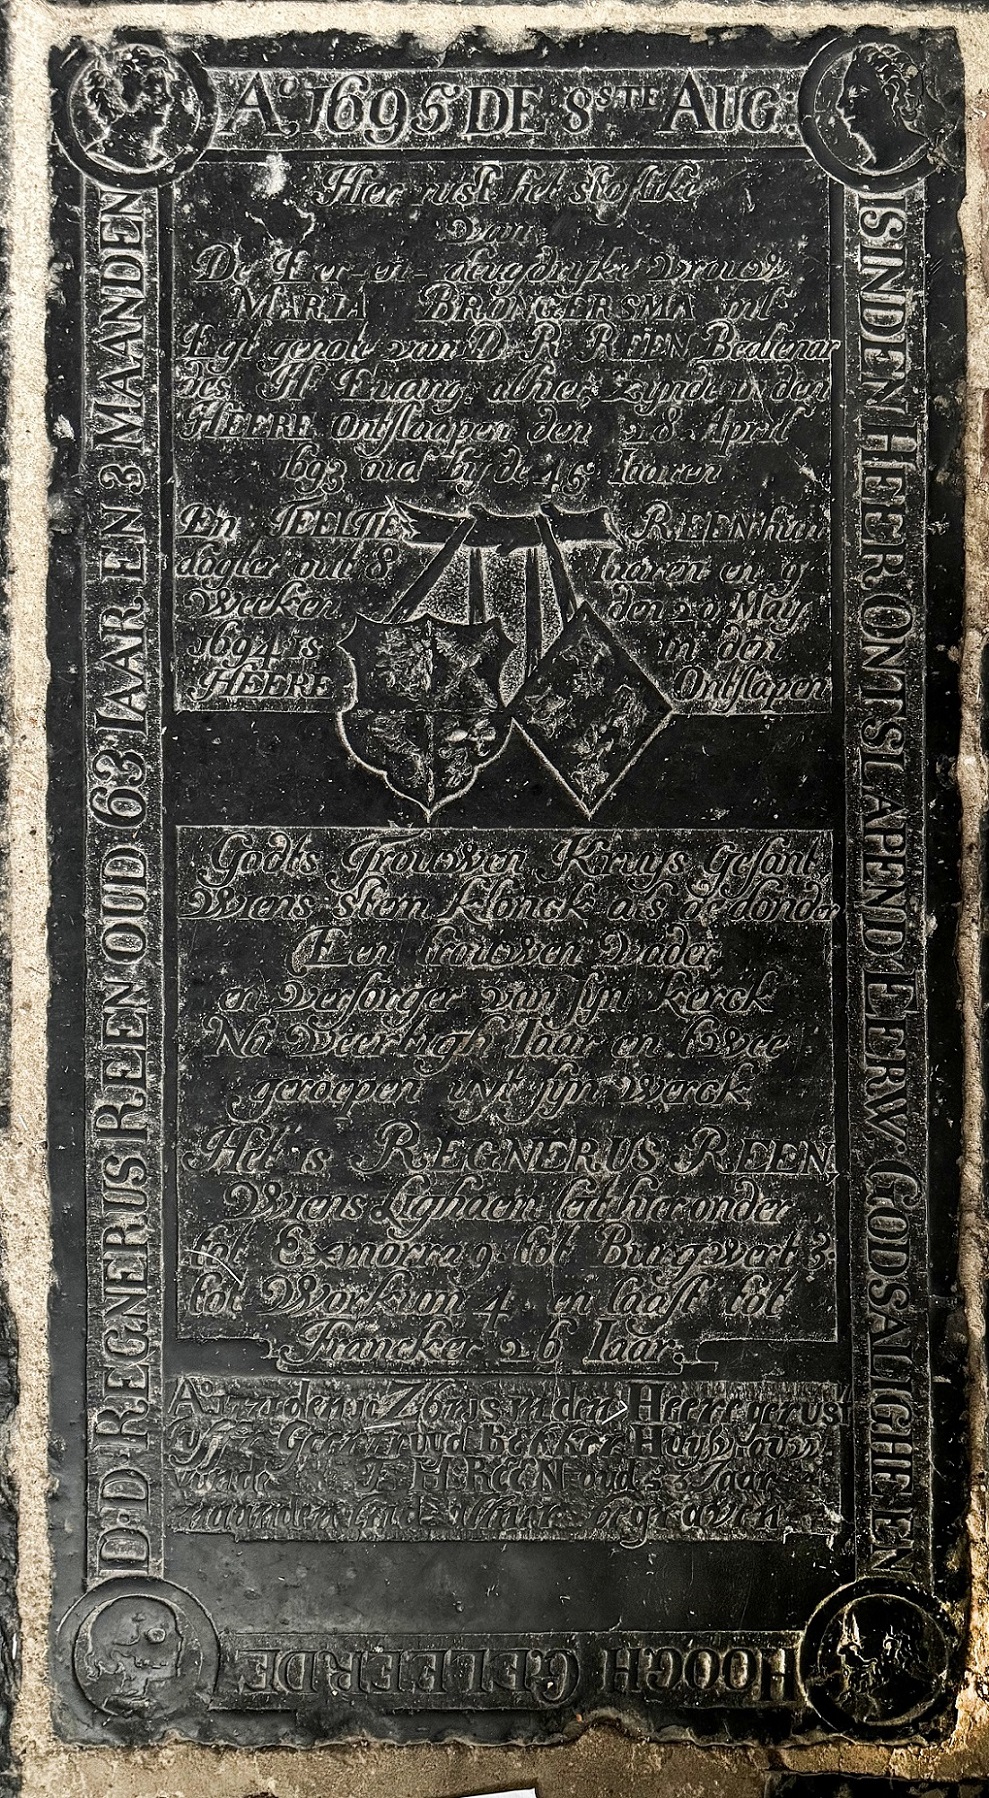 Ao 1695 DE 8STE AUG:
IS IN DEN HEER ONTSLAPEN D EERW. GODSALIGHE EN
HOOGH GELEERDE
D. D. REGNERUS REEN OUD 63 IAAR EN 3 MAANDEN
Hier rust het stoflike
van
De Eer-en-deugdryke vrouw
MARIA BRONGERSMA uit
Egt genote van D. R. REEN Bedienar
des H Euang. alhier, zynde in den
HEERE ontslaapen den 28 April
1693 oud by de 45 Iaaren
En TEELTIE REEN hun
dogter oud 8 Iaaren en 9
Weeken den 29 May
1694 is in den
HEERE Ontslapen
Godts Trouwen Kruys Gesant
Wiens stem klonck als de donder
Een trouwen Vader
en versorger van syn kerck
Na Veertigh Iaar en twee
geroepen uyt syn werck
Het is REGNERUS REEN,
Wiens Lighaem leit hier onder
tot Exmorra 9 tot Burgwert 3.
tot Workum 4 en laast tot
Francker 26 Iaar.
in den Heere gerust
Geertruud Bekker Huysvrouw
F H REEN oud 53 Jaar
maanden end alhier begraven